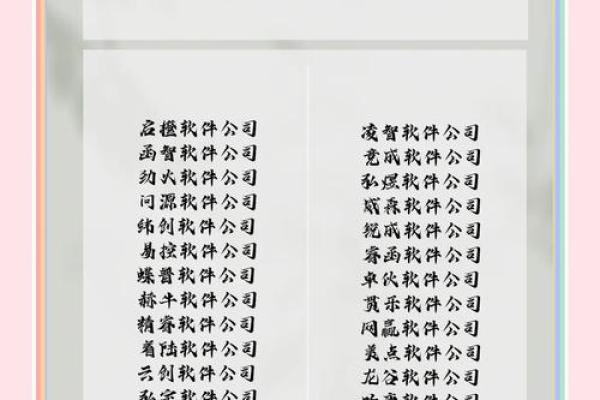 启橙软件公司
函智软件公司
幼火软件公司
问源软件公司
纬创软件公司
易控软件公司
蝶普软件公司
赫牛软件公司
精睿软件公司
着陆软件公司
云创软件公司
软件公司
凌智软件公司
竞成软件公司
弘煜软件公司
威森软件公司
锐成软件公司
睿函软件公司
卓伙软件公司
贯乐软件公司
网赢软件公司
美点软件公司
龙谷软件公司
软件公司